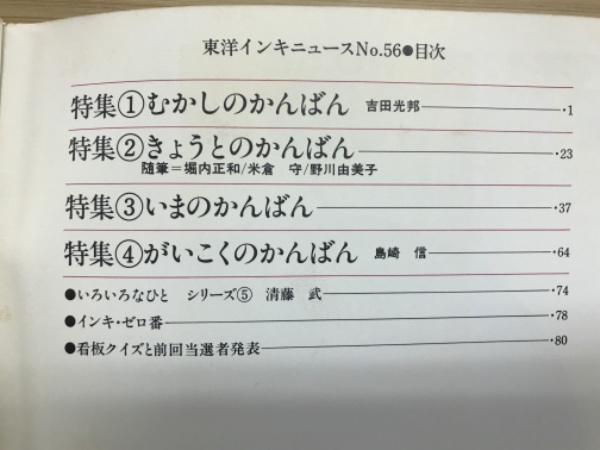 東洋インキニュースNo.56●目次
特集①むかしのかんばん 吉田光邦 ・1
特集②きょうとのかんばん ・23
随筆=堀内正和/米倉 守/野川由美子
特集③いまのかんばん ・37
特集④がいこくのかんばん 島崎 信 ・64
●いろいろなひと シリーズ⑤ 清藤 武 ・74
●インキ・ゼロ番 ・78
●看板クイズと前回当選者発表 ・80